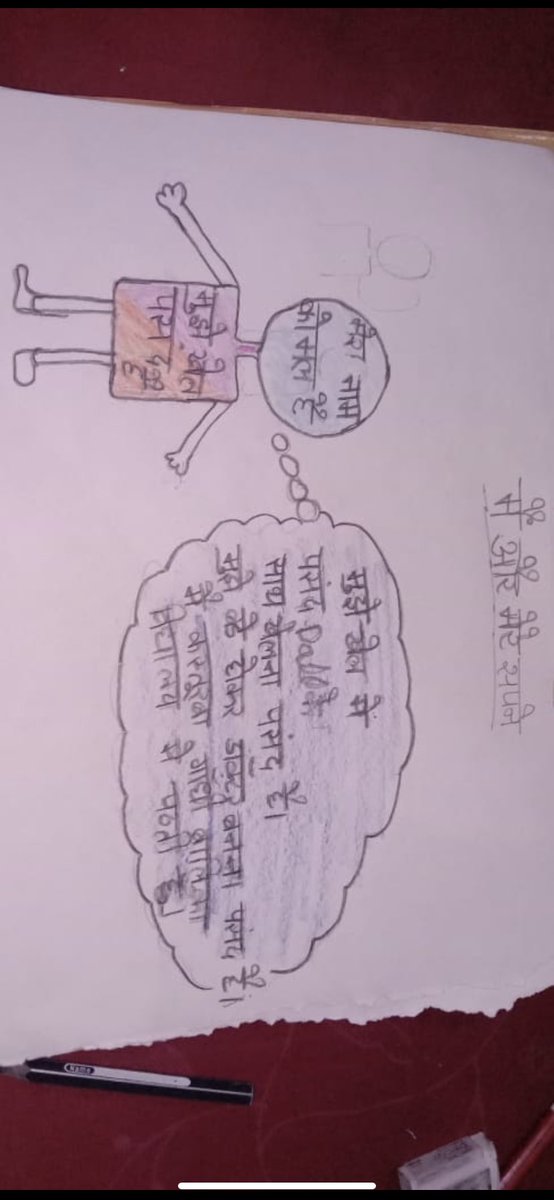 मैं और मेरे सपने
मेरा नाम
कोमल है
मुझे खेल
पसंद है
मुझे खेल में
पसंद Dad के
साथ खेलना पसंद है।
मुझे बडे होकर डॉक्टर बनना पसंद है।
मैं कस्तूरबा गांधी बालिका
विद्यालय में पढती हूँ